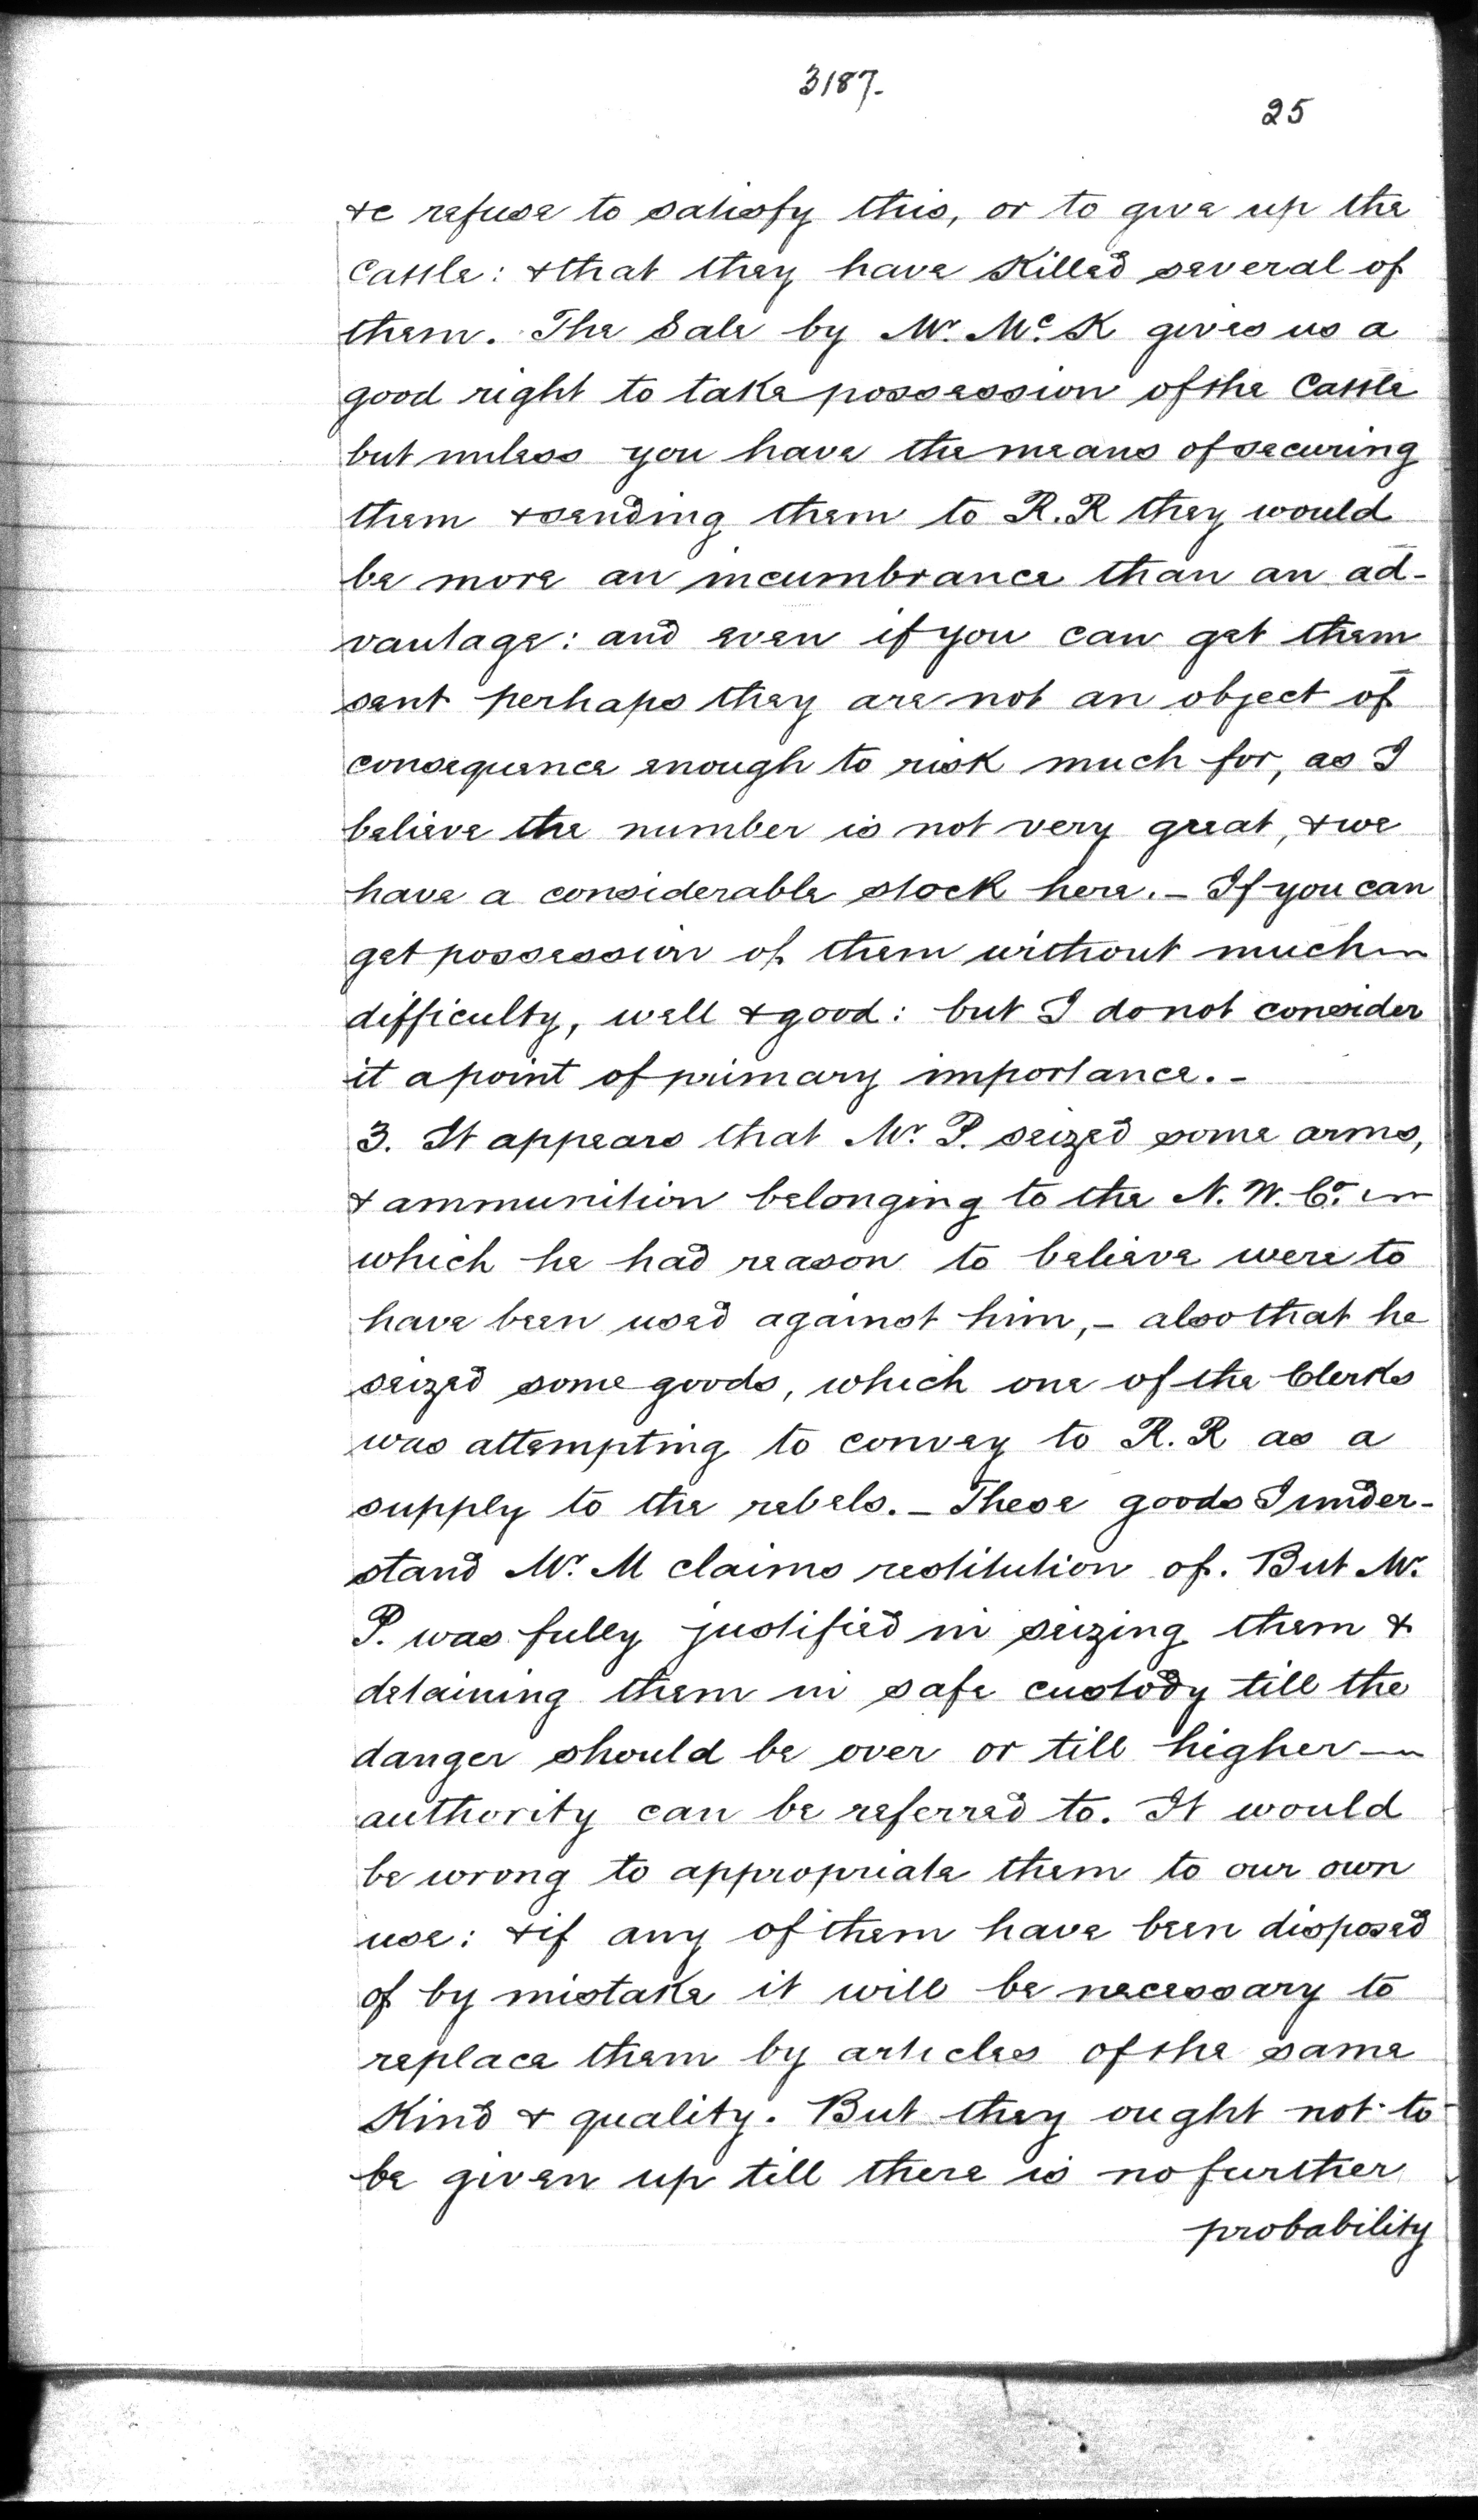 3187.
25
&c refuse to satisfy this, or to give up the
Cattle: & that they have Killed several of
them. The Sale by Mr. Mc.K gives us a
good right to take possession of the Cattle
but unless you have the means of securing
them & sending them to R.R they would
be more an incumbrance than an ad-
vantage: and even if you can get them
sent perhaps they are not an object of
consequence enough to risk much for, as I
believe the number is not very great, & we
have a considerable stock here. – If you can
get possession of them without much
difficulty, well & good: but I do not consider
it a point of primary importance. –
3. It appears that Mr. P. seized some arms,
& ammunition belonging to the N. W. Co.
which he had reason to believe were to
have been used against him, – also that he
seized some goods, which one of the Clerks
was attempting to convey to R. R as a
supply to the rebels. – These goods I under-
stand Mr. M claims restitution of. But Mr.
P. was fully justified in seizing them &
detaining them in safe custody till the
danger should be over or till higher
authority can be referred to. It would
be wrong to appropriate them to our own
use: & if any of them have been disposed
of by mistake it will be necessary to
replace them by articles of the same
Kind & quality. But they ought not to
be given up till there is no further
probability